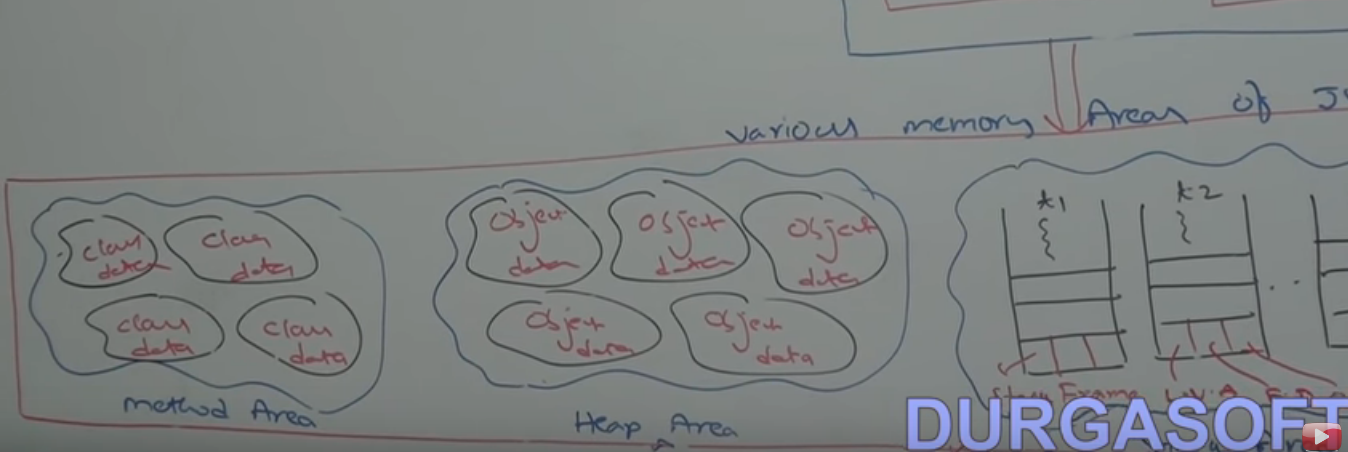 various memory Areas of J
class data
class data
class data
class data
method Area
object data
object data
object data
object data
object data
Heap Area
t1
t2
Stack Frame
L.V.A
DURGASOFT